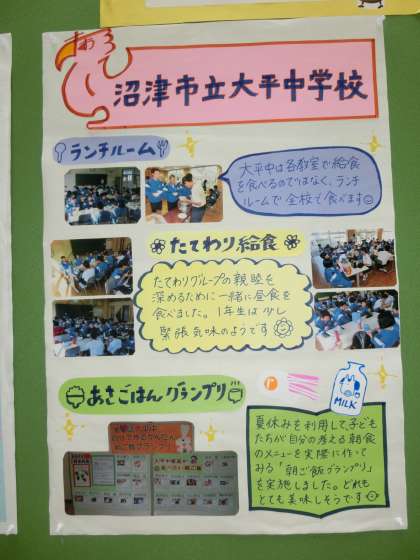 沼津市立大平中学校
ランチルーム
大平中は各教室で給食
を食べるのではなく、ランチ
ルームで全校で食べます
たてわり給食
たてわりグループの親睦を
深めるために一緒に昼食を
食べました。1年生は少し
緊張気味のようです
あさごはんグランプリ
MILK
夏休みを利用して、子ども
たちが自分の考える朝食
のメニューを実際に作って
みる「朝ご飯グランプリ」
を実施しました。どれも
とても美味しそうです